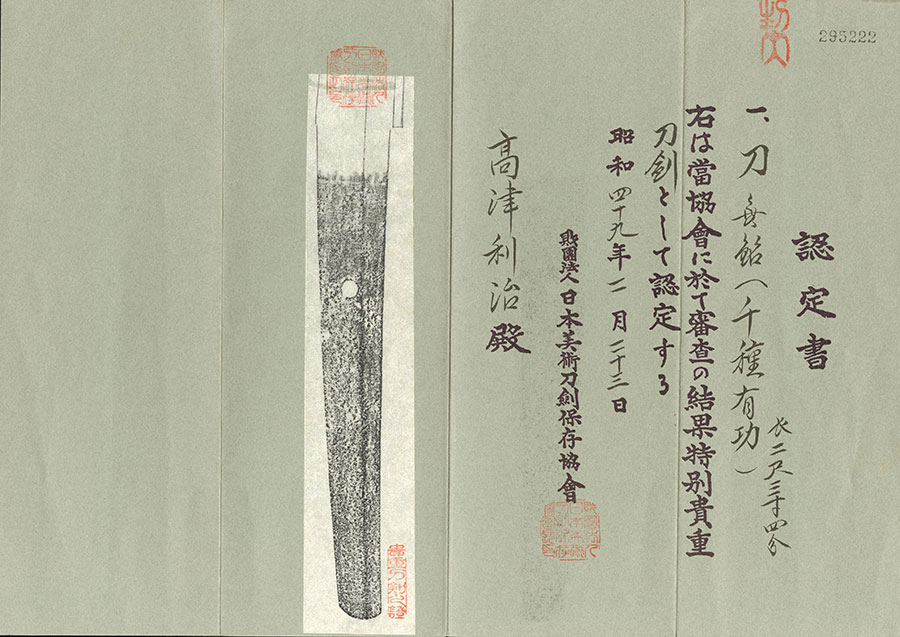 295222
認定書
一、刀 無銘(千種有功)
長二尺三寸四分
右は當協會に於て審査の結果特別貴重
刀劍として認定する
昭和四十九年二月二十三日
財團法人日本美術刀劍保存協會
高津利治殿